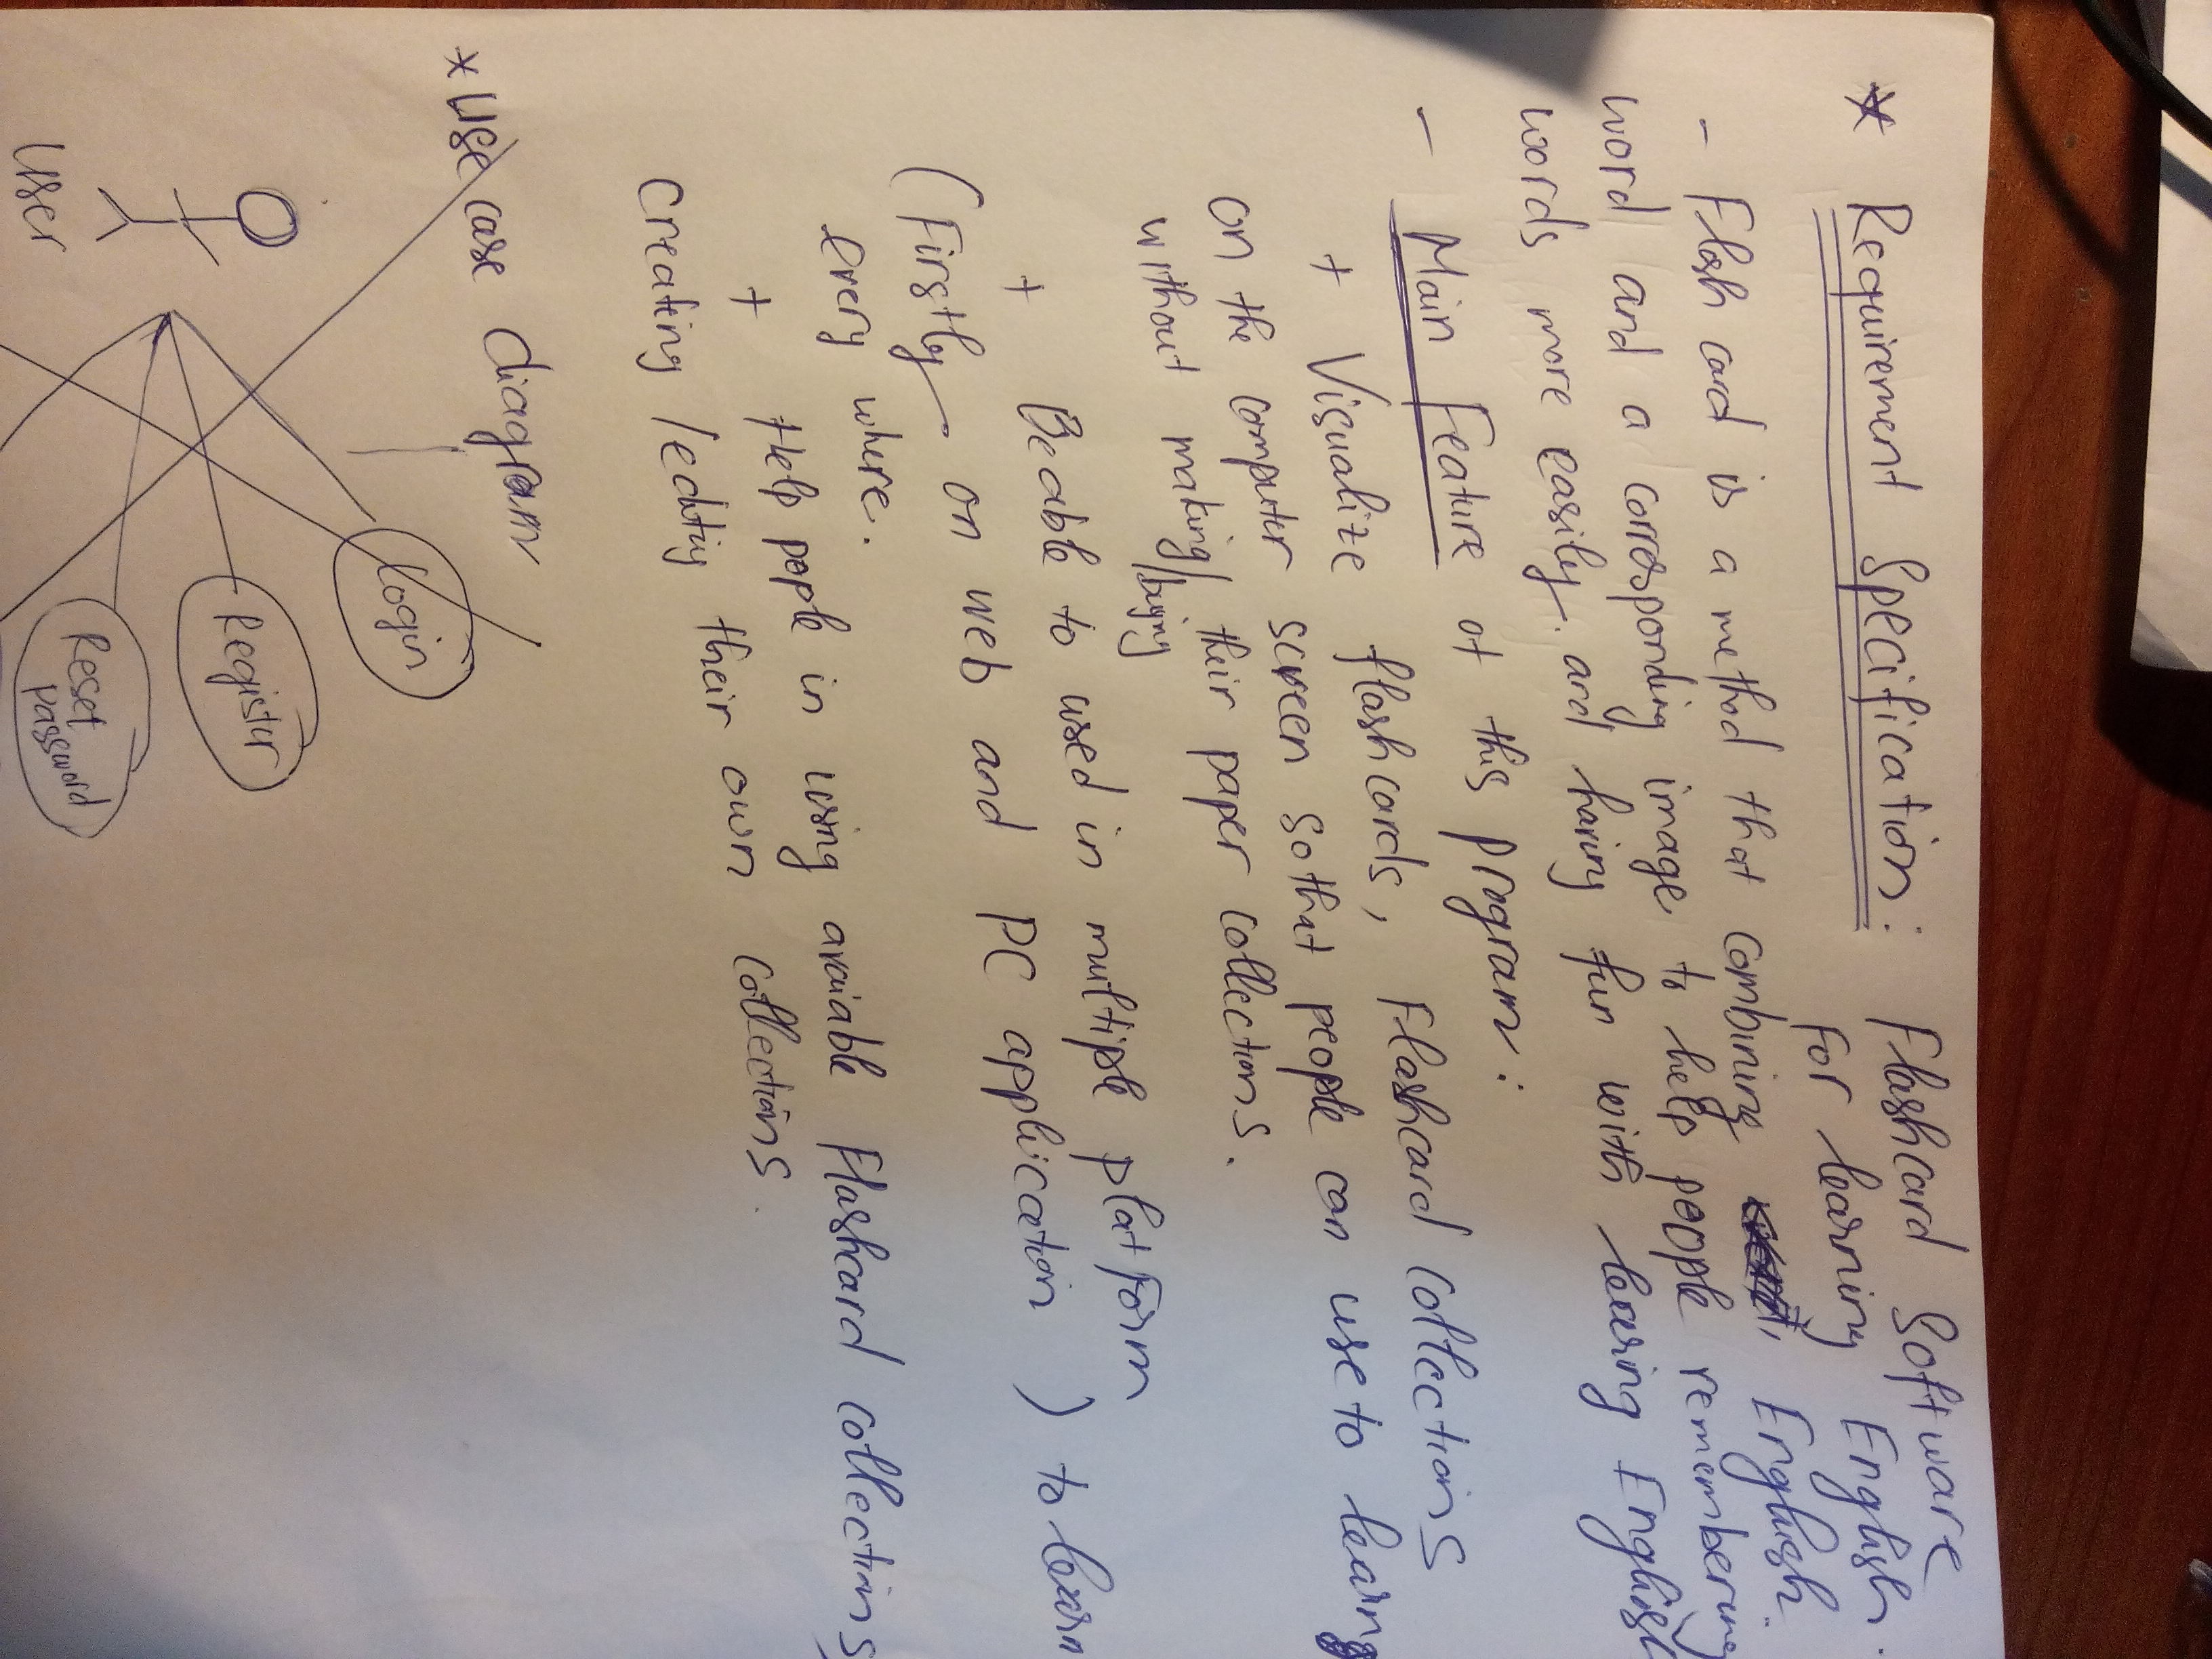 * Requirement Specification: Flashcard Software
For learning English.
- Flash card is a method that combining English
word and a corresponding image to help people remembering
words more easily. and having fun with learing English
- Main Feature of this program:
+ Visualize flashcards, Flashcard collections
on the computer screen so that people can use to learn
without making/buying their paper collections.
+ Beable to used in multiple platform
(Firstly on web and PC application) to learn
every where.
+ Help people in using avaiable Flashcard collections
creating/editing their own collections.
* Use case diagram
Login
Register
Reset
password
User